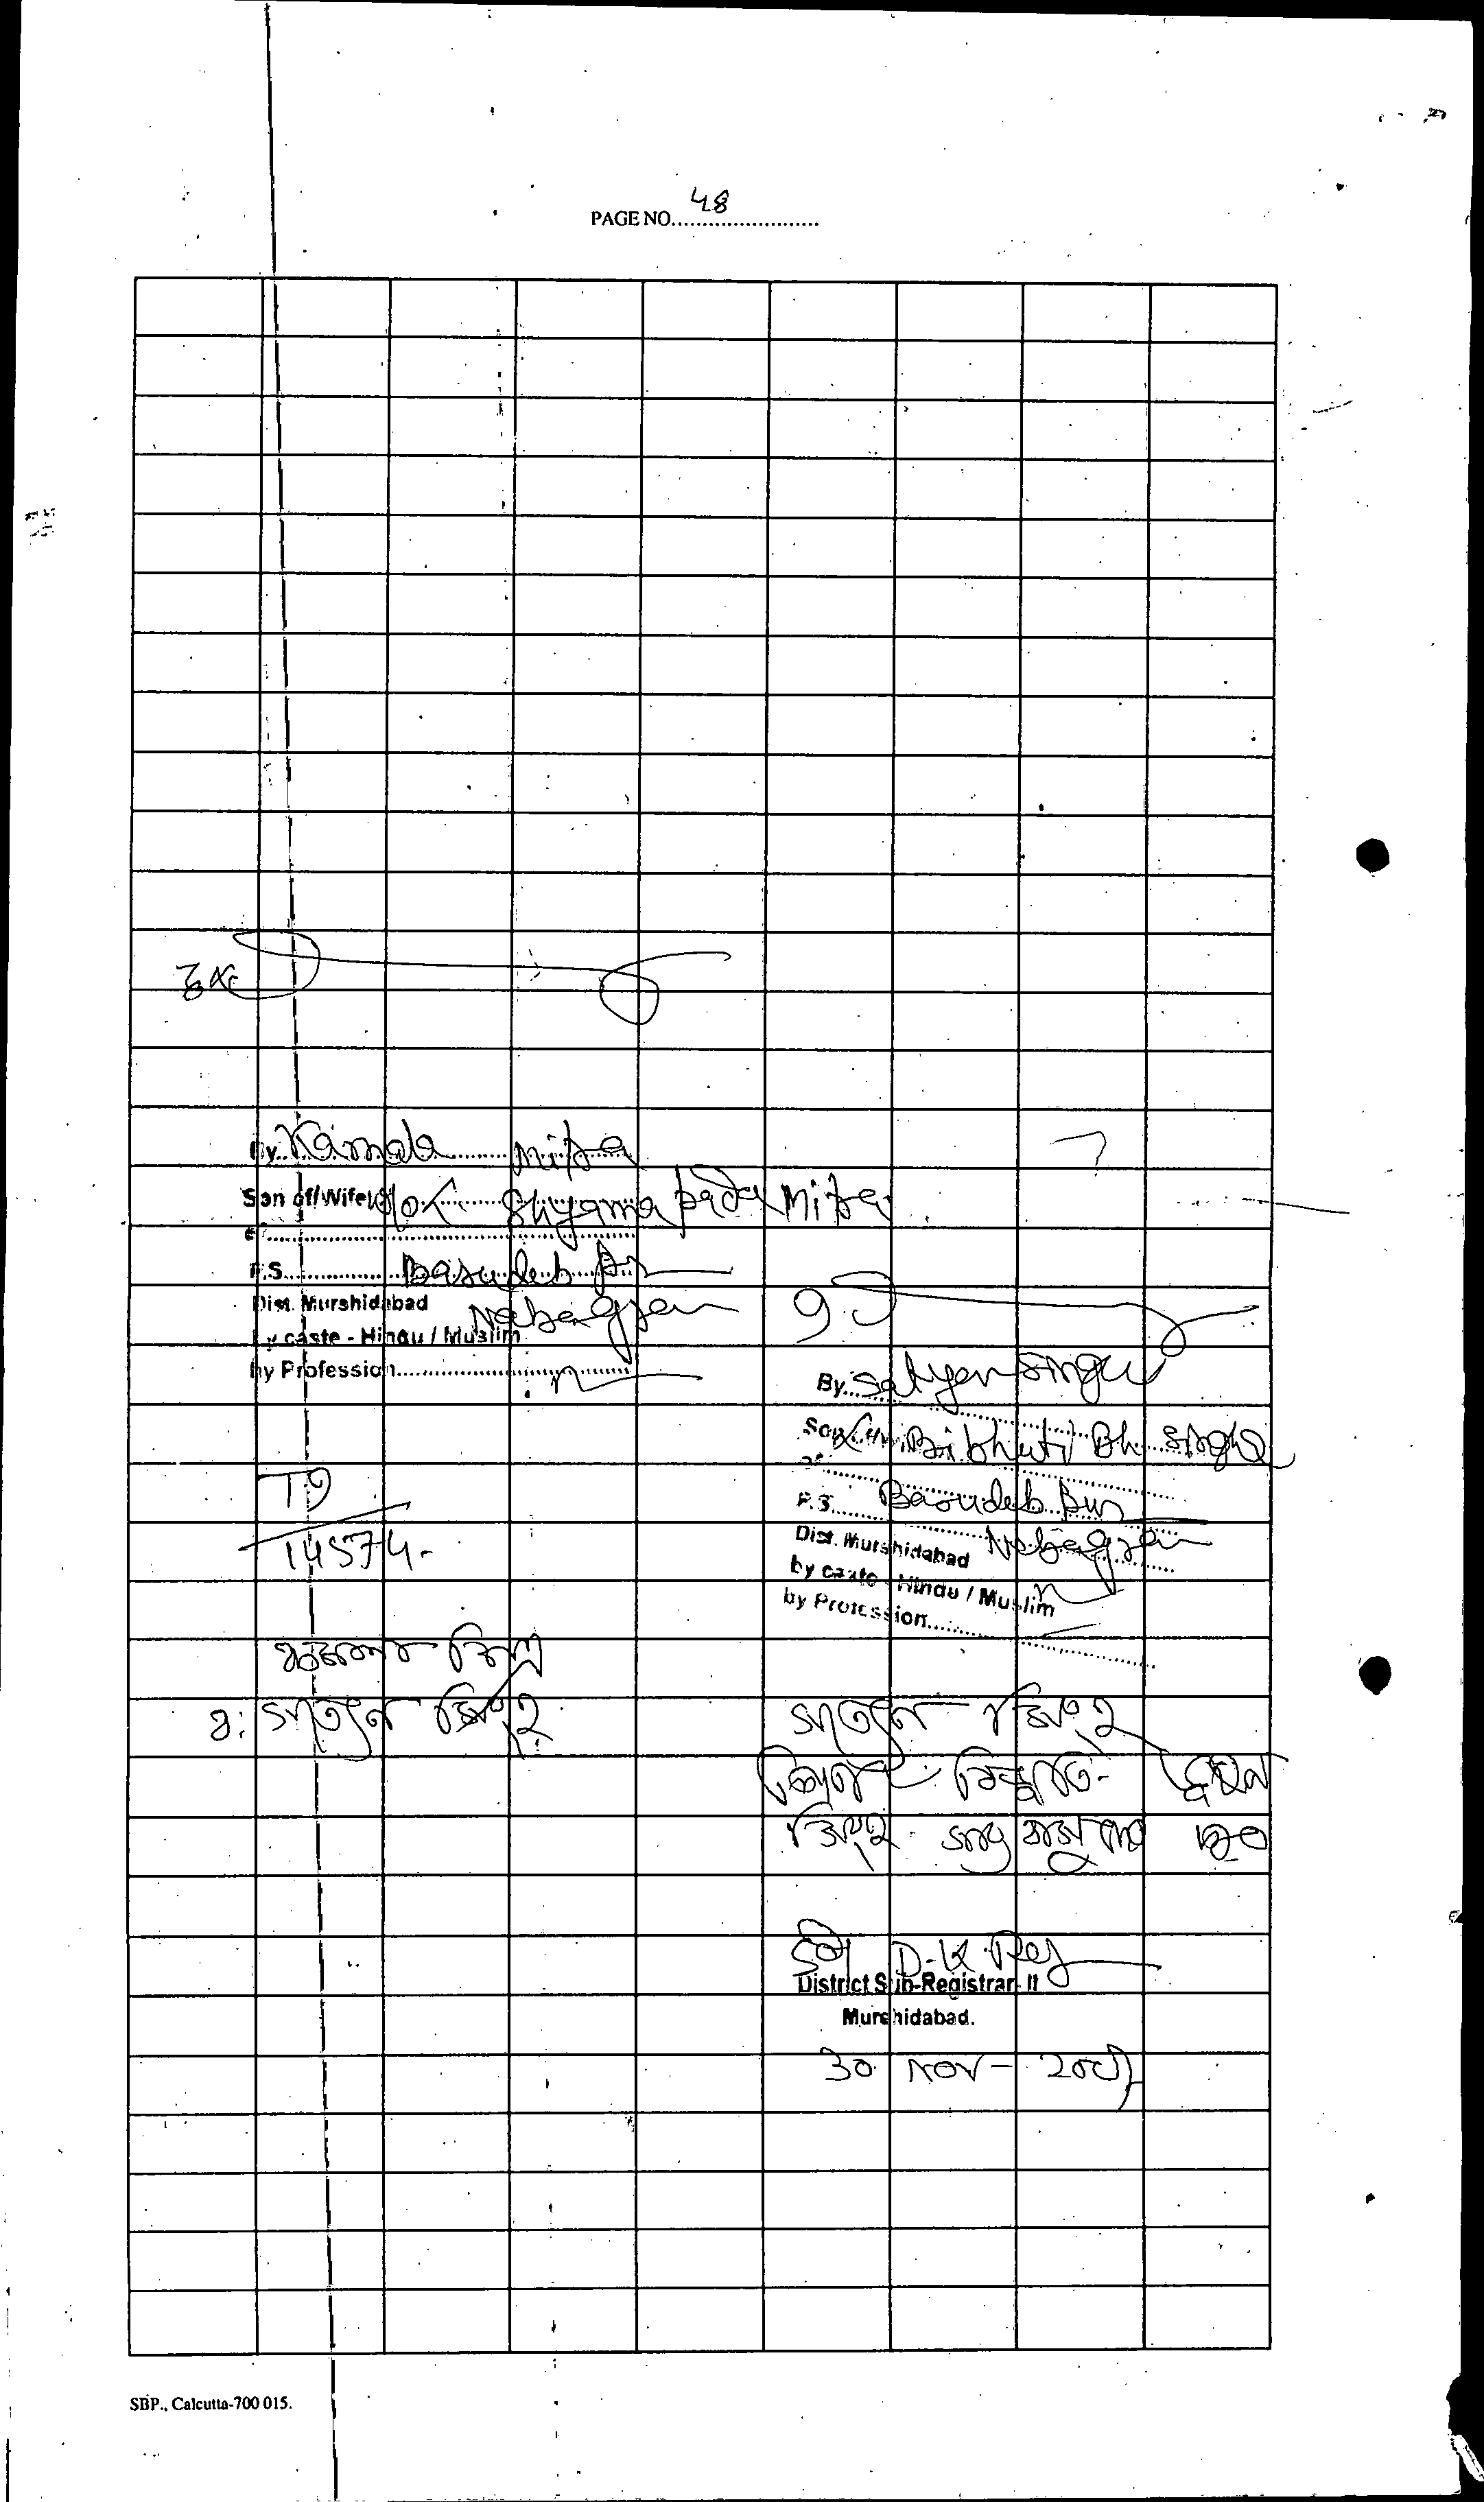 PAGE NO. 48
Ex
By Kamala Mitra
Son of/Wife Shyama pada Mitra
of
P.S. Basudeb Pur
Dist. Murshidabad Nabagram
by caste - Hindu / Muslim
by Profession
By Satyen Singha
Son Bibhuti Bh Singha
of
P.S. Basudeb Pur
Dist. Murshidabad Nabagram
by caste - Hindu / Muslim
by Profession
14574.
কমলা মিত্র
সত্যেন সিংহ
সত্যেন সিংহ
পিতা বিভূতি ভূষন
সিংহ
D. K. Roy
District Sub-Registrar-II
Murshidabad.
30 NOV - 2007
SBP., Calcutta-700 015.